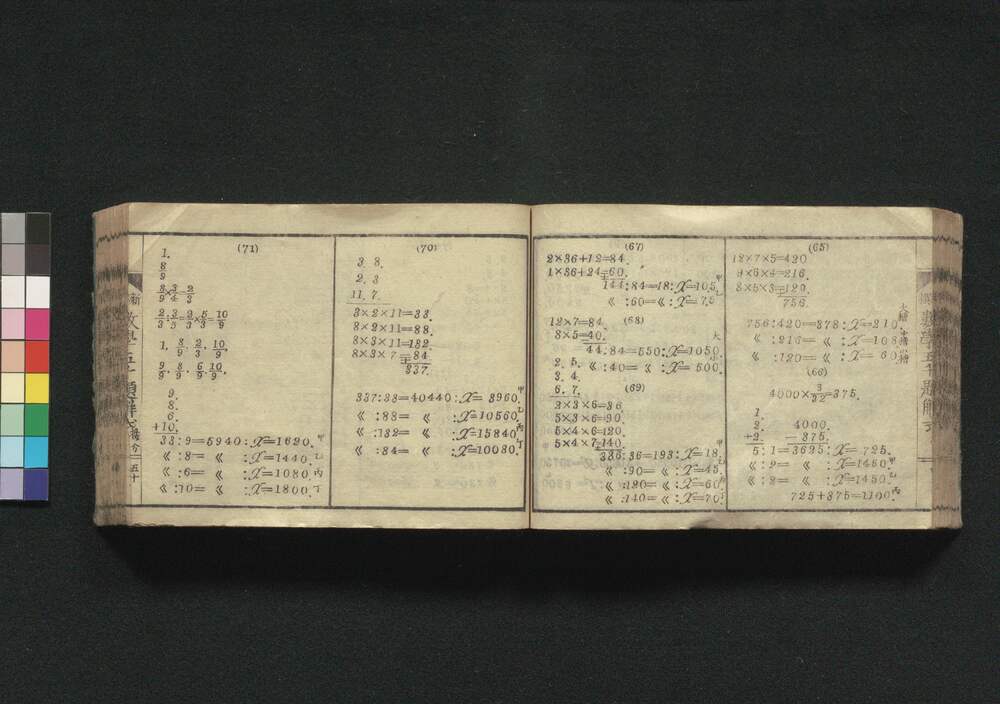 (65)
12×7×5=420
9×6×4=216.
8×5×3=120.
756.
756:420=378:X=210.
《:216=《:X=108
《:120=《:X=60.
(66)
4000×3/32=375.
1.
2. 4000.
+2. -375.
5:1=3625:X=725.
《:2=《:X=1450.甲
《:2=《:X=1450.乙
725+375=1100.丙
(67)
2×36+12=84.
1×36+24=60.
144:84=18:X=105.甲
《:60=《:X=75乙
(68)
12×7=84.
8×5=40.
44:84=550:X=1050.大
《:40=《:X=500.小
(69)
2. 5.
3. 4.
6. 7.
2×3×6=36.
5×3×6=90.
5×4×6=120.
5×4×7=140.
386:36=193:X=18.甲
《:90=《:X=45.乙
《:120=《:X=60.丙
《:140=《:X=70.丁
(70)
3. 8.
2. 3
11. 7.
3×2×11=33.
8×2×11=88.
8×3×11=132
8×3×7=84.
337.
337:33=40440:X=3960.甲
《:88=《:X=10560.乙
《:132=《:X=15840.丙
《:84=《:X=10080.丁
(71)
1.
8
9
8/9×3/4=2/3
2/3:3/5=2/3×5/3=10/9.
1. 8/9. 2/3. 10/9.
9/9. 8/9. 6/9. 10/9.
9.
8.
6.
+10.
33:9=5940:X=1620.甲
《:8=《:X=1440.乙
《:6=《:X=1080.丙
《:10=《:X=1800.丁